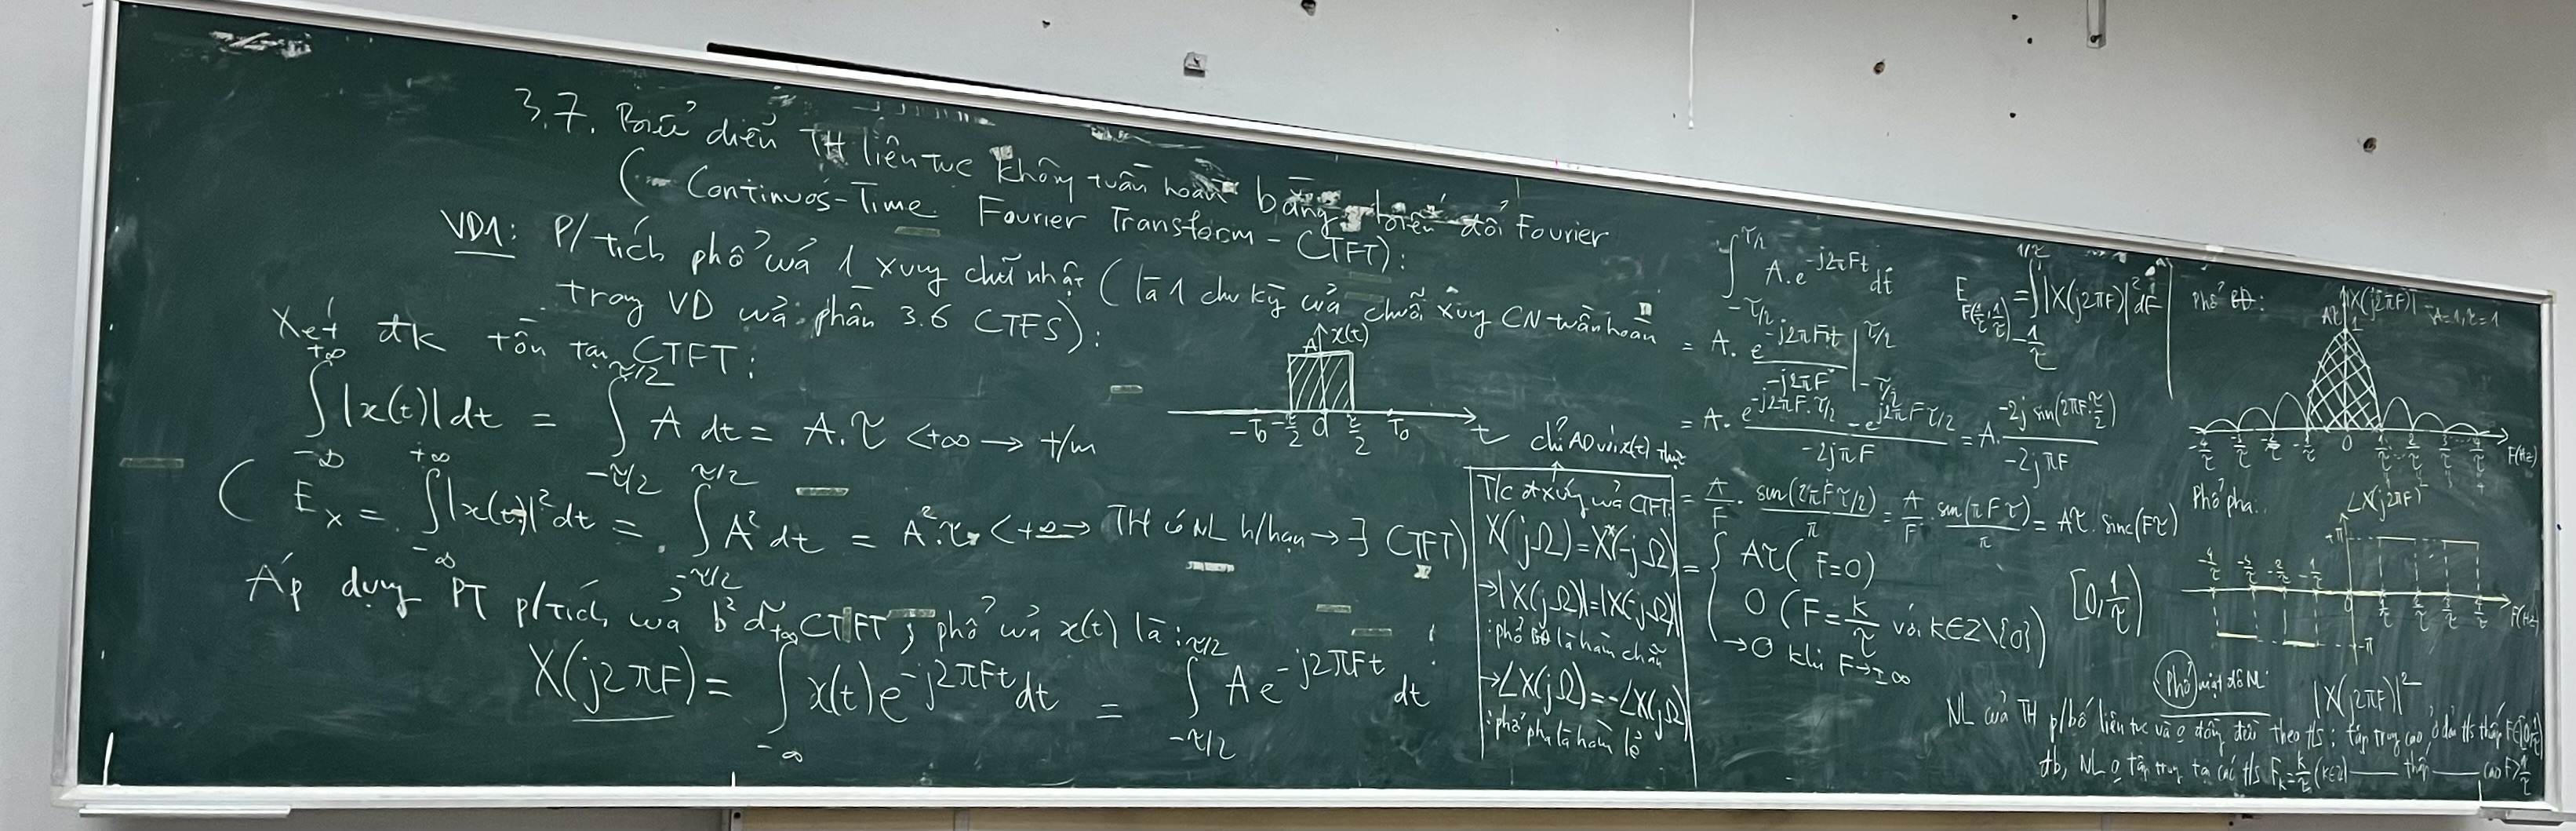 3.7. Biểu diễn TH liên tục không tuần hoàn bằng biến đổi Fourier
( - Continuos-Time Fourier Transform - CTFT):
VD1: P/tích phổ của 1 xung chữ nhật (là 1 chu kỳ của chuỗi xung CN tuần hoàn
trong VD của phần 3.6 CTFS):
Xét đk tồn tại CTFT:
∫_{-∞}^{+∞} |x(t)| dt = ∫_{-τ/2}^{τ/2} A dt = A.τ < +∞ → t/m
( E_x = ∫_{-∞}^{+∞} |x(t)|² dt = ∫_{-τ/2}^{τ/2} A² dt = A².τ < +∞ → TH có NL h/hạn → ∃ CTFT)
Áp dụng PT p/tích của b² đ CTFT, phổ của x(t) là:
X(j2πF) = ∫_{-∞}^{+∞} x(t) e^{-j2πFt} dt = ∫_{-τ/2}^{τ/2} A e^{-j2πFt} dt
A x(t)
-T₀ -τ/2 0 τ/2 T₀ t
chỉ AD với x(t) thực
T/c đ xứng của CTFT:
X(jΩ) = X*(-jΩ)
→ |X(jΩ)| = |X(-jΩ)|
: phổ BĐ là hàm chẵn
→ ∠X(jΩ) = -∠X(jΩ)
: phổ pha là hàm lẻ
∫_{-τ/2}^{τ/2} A.e^{-j2πFt} dt
= A. e^{-j2πFt} / -j2πF |_{-τ/2}^{τ/2}
= A. (e^{-j2πF.τ/2} - e^{j2πFτ/2}) / -2jπF = A. -2j sin(2πF.τ/2) / -2jπF
= A/F . sin(2πFτ/2)/π = A/F . sin(πFτ)/π = Aτ. sinc(Fτ)
= { Aτ (F=0)
0 (F = k/τ với k∈Z\{0})
→ 0 khi F→±∞
[0, 1/τ)
E_{F(-1/τ, 1/τ)} = ∫_{-1/τ}^{1/τ} |X(j2πF)|² dF
Phổ BĐ:
|X(j2πF)| A=1, τ=1
Aτ 1
-4/τ -3/τ -2/τ -1/τ 0 1/τ 2/τ 3/τ 4/τ F(Hz)
Phổ pha:
∠X(j2πF)
+π
-4/τ -3/τ -2/τ -1/τ 0 1/τ 2/τ 3/τ 4/τ F(Hz)
-π
Phổ mật độ NL: |X(j2πF)|²
NL của TH p/bố liên tục và o đồng đều theo t/s: tập trung cao ở dải t/s thấp F∈[0,1/τ)
đb, NL o tập trung tại các t/s F_k = k/τ (k∈Z) —— thấp —— cao F>1/τ